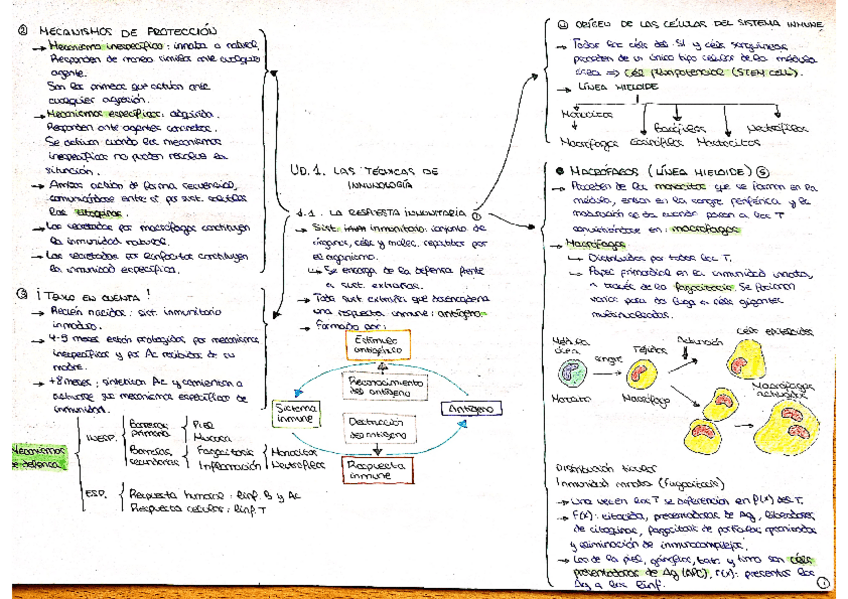 ② MECANISMOS DE PROTECCIÓN
→ Mecanismo inespecífico: innata o natural.
Responden de manera similar ante cualquier
agente.
Son los primeros que actúan ante
cualquier agresión.
→ Mecanismos específicos: adquirida.
Responden ante agentes concretos.
Se activan cuando los mecanismos
inespecíficos no pueden resolver la
situación.
→ Ambos actúan de forma secuencial,
comunicándose entre sí por sust. solubles
las citoquinas.
→ Las secretadas por macrófagos constituyen
la inmunidad natural.
→ Las secretadas por linfocitos constituyen
la inmunidad específica.
③ ¡TENLO EN CUENTA!
→ Recién nacidos: sist. inmunitario
inmaduro.
→ 4-5 meses están protegidos por mecanismos
inespecíficos y por Ac recibidos de su
madre.
→ +8 meses: sintetizan Ac y comienzan a
activarse sus mecanismos específicos de
inmunidad.
Mecanismos
de defensa
INESP.
Barreras
primarias
Piel
Mucosa
Barreras
secundarias
Fagocitosis
Inflamación
Monocitos
Neutrófilos
ESP.
Respuesta humoral: linf. B y Ac
Respuesta celular: linf. T
UD.1. LAS TÉCNICAS DE
INMUNOLOGÍA
1.1. LA RESPUESTA INMUNITARIA ①
→ Sist. inmunitario: conjunto de
órganos, céls y molec. repartidos por
el organismo.
↳ Se encarga de la defensa frente
a sust. extrañas.
→ Toda sust. extraña que desencadena
una respuesta inmune: antígeno.
→ Formado por:
Estímulo
antigénico
Reconocimiento
del antígeno
Sistema
inmune
Antígeno
Destrucción
del antígeno
Respuesta
inmune
④ ORIGEN DE LAS CÉLULAS DEL SISTEMA INMUNE
→ Todas las céls del SI y céls sanguíneas
proceden de un único tipo celular de la médula
ósea ⇒ cél. pluripotencial (STEM CELL).
→ LÍNEA MIELOIDE
Monocitos
Basófilos
Neutrófilos
Macrófagos
Eosinófilos
Mastocitos
• MACRÓFAGOS (LÍNEA MIELOIDE) ⑤
→ Proceden de los monocitos que se forman en la
médula, entran en la sangre periférica y la
maduración se da cuando pasan a los T
convirtiéndose en: macrófagos
→ Macrófagos
↳ Distribuidos por todos los T.
↳ Papel primordial en la inmunidad innata,
a través de la fagocitosis. Se fusionan
varios para dar lugar a céls gigantes
multinucleadas.
Médula
ósea
sangre
Tejidos
Activación
Céls epitelioides
Monocito
Macrófago
Macrófagos
activados
Distribución tisular
Inmunidad innata (fagocitosis)
→ Una vez en los T se diferencian en f(x) del T.
→ F(x): citocida, presentadoras de Ag, liberadores
de citoquinas, fagocitosis de partículas opsonizadas
y eliminación de inmunocomplejos.
→ Los de la piel, ganglios, bazo y timo son céls
presentadoras de Ag (APC), F(x): presentar los
Ag a los linf.
1